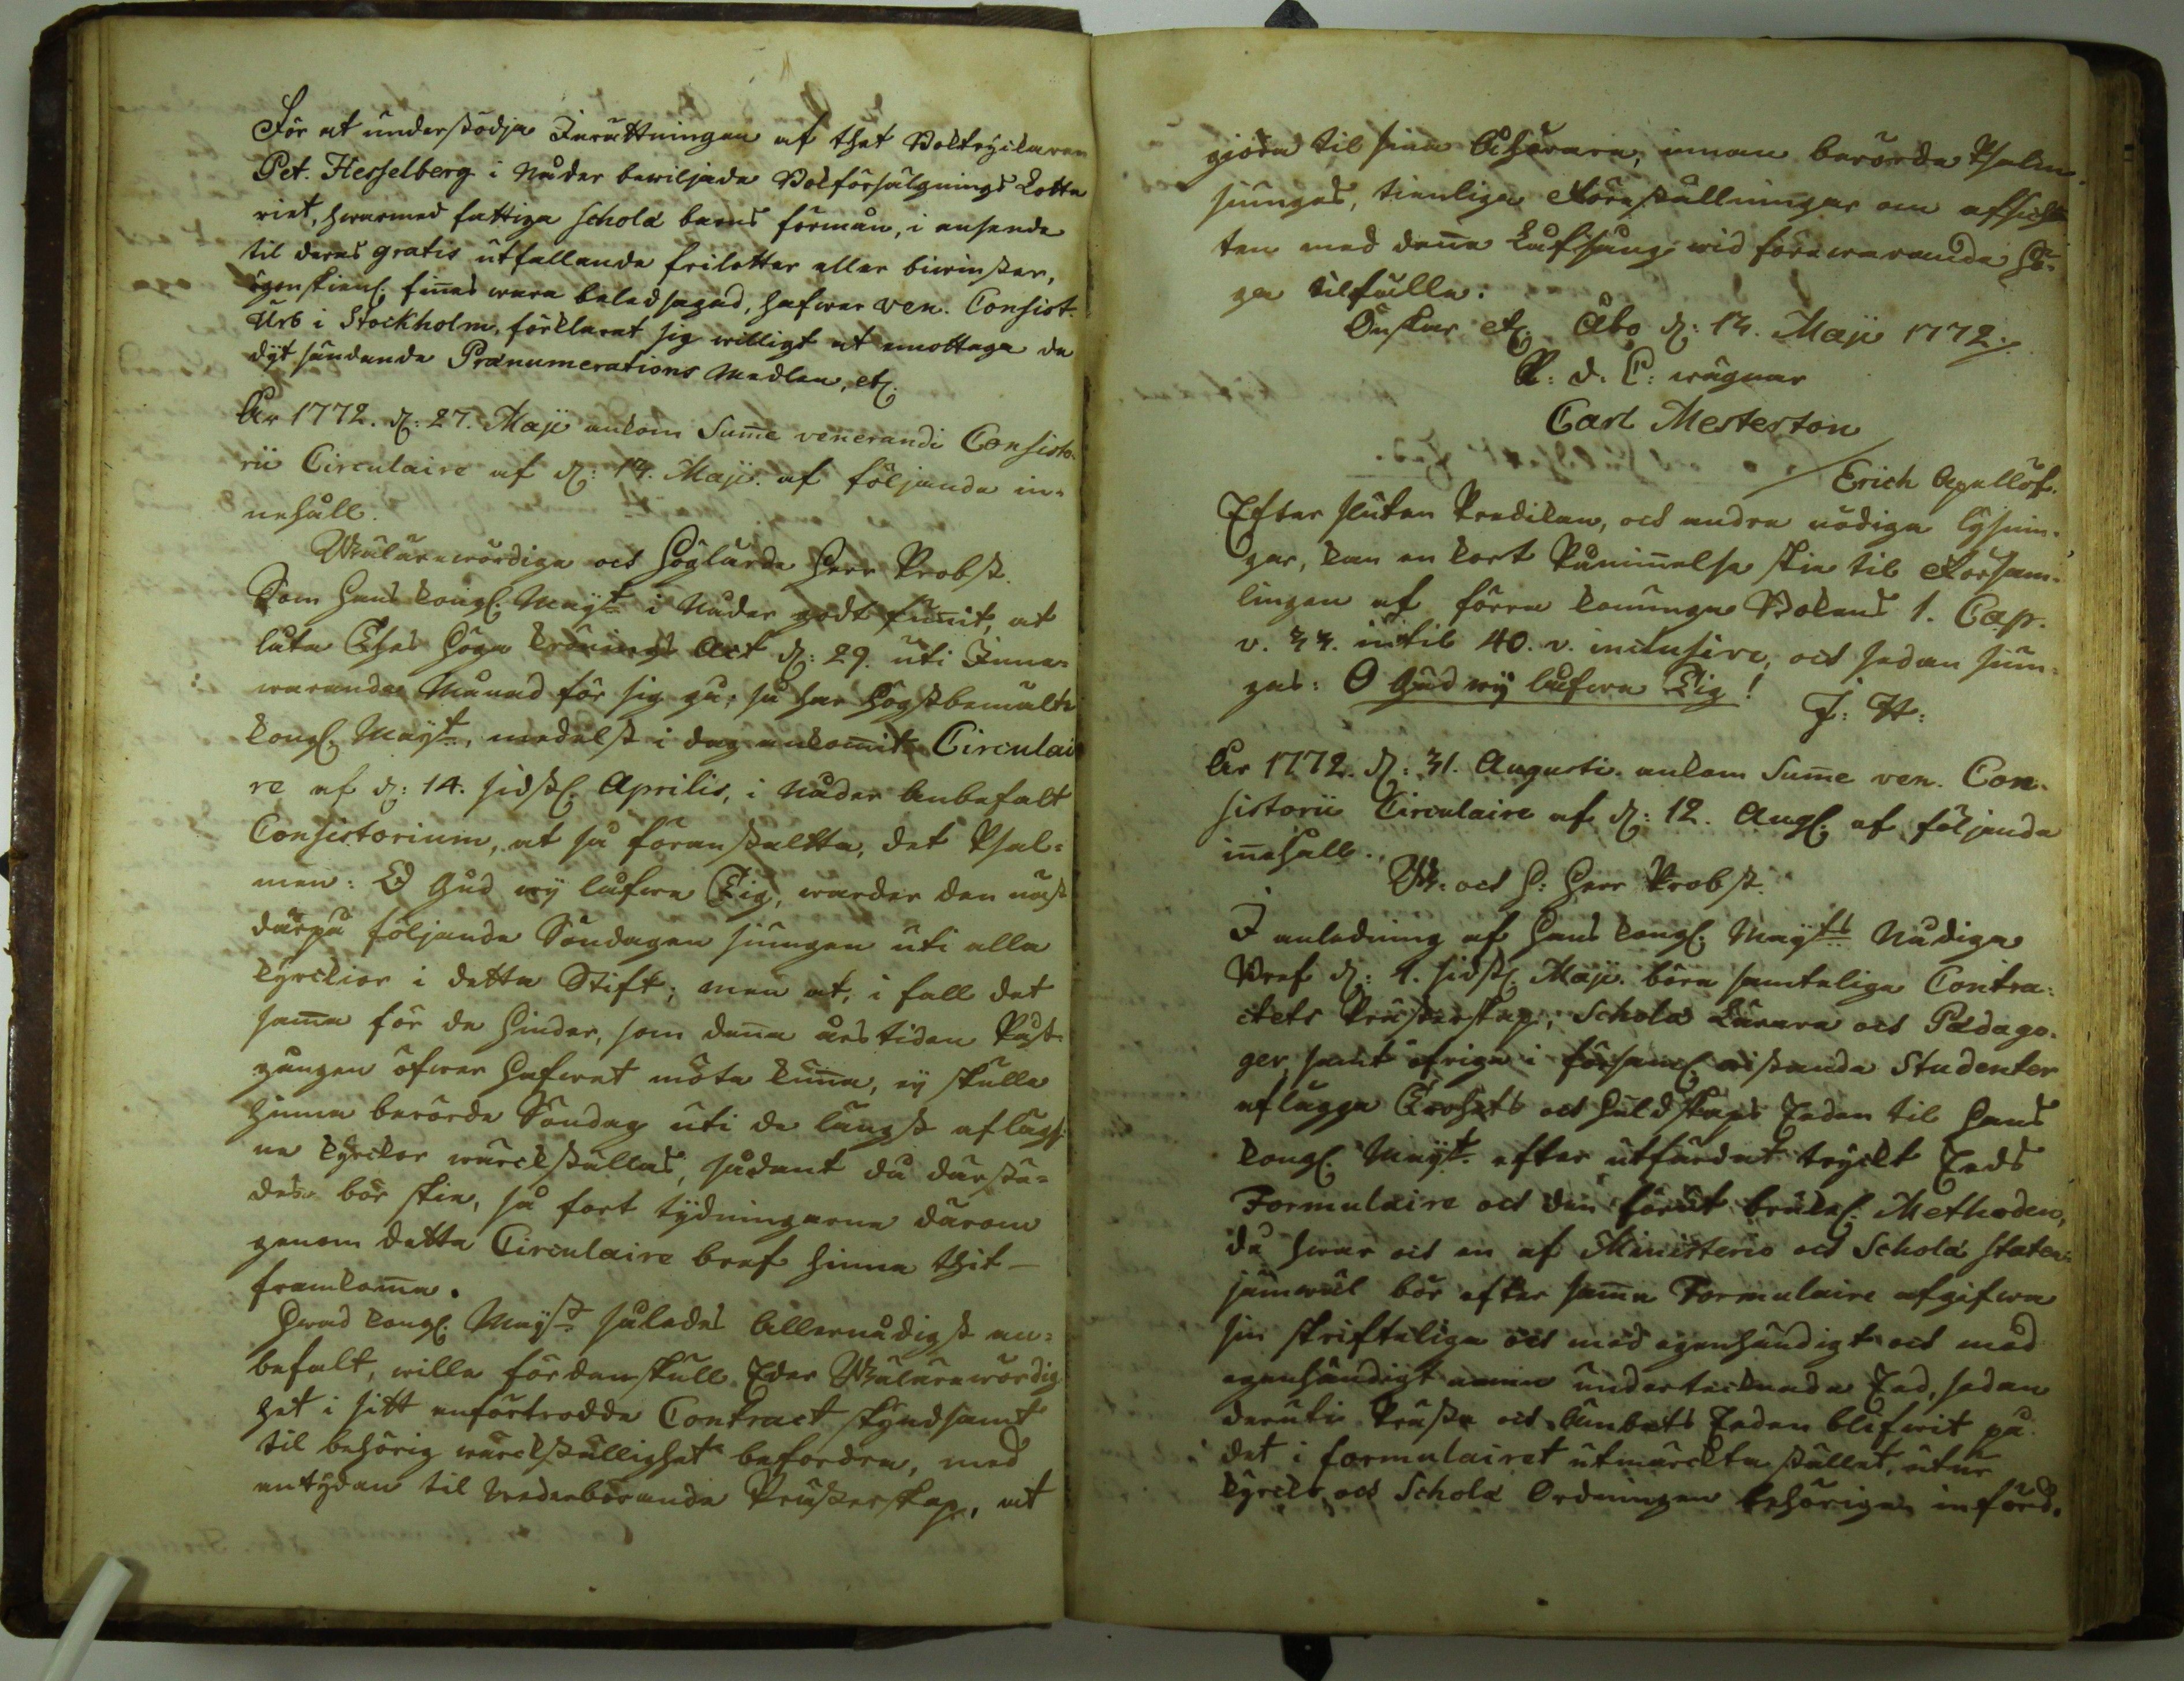 För at understödja Inrättningen af thet Boktryckaren
Pet. Hesselberg i Nåder beviljade Bokförsälgnings Lotte
riet, hvarmed fattiga Scholæ barns förmån, i anseende
til deras gratis utfallande frilotter eller bivinster,
ögonskienl. finnes wara beledsagad, hafwer ven. Consist.
Urb i Stockholm, förklarat sig willigt at emottaga de
dyt sändande Prænumerations Medlen, etc.
År 1772. d: 27. Maji ankom Summe venerandi Consisto-
rii Circulaire af d: 14. Maji. af följande in-
nehåll.
Wälärewördige och Höglärde Herr Probst.
Som Hans Kongl. Mayt i Nåder godt funnit, at
låta Thes Höga Krönings Act d: 29. uti Inne-
warande Månad för sig gå; så har Högstbemälte
Kongl. Mayt, medelst i dag ankomit Circulai
re af d: 14. sidstl. Aprilis, i Nåder Anbefalt
Consistorium, at så föranstalta, det Psal-
men: O Gud wij lofwe Tig, warder den näst
därpå följande Söndagen siungen uti alla
kyrckior i detta Stift; men at, i fall det
samma för de hinder, som denna årstiden Post-
gången öfwer Hafwet möta kunna, ej skulle
hinna berörde Söndag uti de längst aflägs-
na kyrckor wärckställas, sådant då därstä-
des bör skie, så fort tydningarne därom
genom detta Circulaire bref hinna thit
framkomma.
Hvad Kongl. Mayst således Allernådigst an-
befalt, wille fördenskull Eder Wälärewördig
het i sitt anförtrodde Contract skyndsamt
til behörig wärckställighet befordra, med
antydan til wederbörande Prästerskap, at
giöra til sina Åhörare, innan berörde Psalm
siunges, tienlige Föreställningar om afsich
ten med denna Lofsång wid förewarande Hö-
ga tilfälle.
Önskar etc. Åbo d: 14. Maji 1772.
P: d: C: wägnar
Carl Mesterton
Erich Apellöf.
Efter sluten Predikan, och andre nödige Lysnin-
gar, kan en kort Påminnelse skie til Försam-
lingen af förra Konunga Bokens 1. Cap.
v. 34. intil 40. v. inclusive, och sedan siun-
ges: O Gud wij lofwe Tig!
J: H:
År 1772. d: 31. Augusti. ankom Summe ven. Con-
sistorii Circulaire af d: 12. Augl. af följande
innehåll.
W: och H: Herr Probst.
I anledning af Hans Kongl. Mayts Nådiga
Bref d: 1. sidstl. Maji. böra samtelige Contra-
ctets Prästerskap, Scholæ Lärare och Pædago-
ger, samt öfrige i församl. wistande Studenter
aflägga Trohets och Huldskaps Eeden til Hans
Kongl. Mayt. efter utfärdat tryckt Eeds
Formulaire och den förut brukel. Methoden,
då hwar och en af Ministerio och Scholæ staten
jämwäl bör efter samma Formulaire afgifwa
sin skriftelige och med egenhändigt och med
egenhändigt namn undertecknade Eed, sedan
deruti Präste och Ämbets Eeden blifwit på
det i formulairet utmärckta stället, utur
Kyrcko och Scholæ Ordningen behörigen införd.